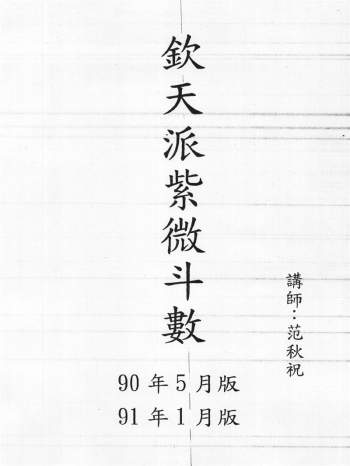 欽天派紫微斗數
講師：范秋祝
90年5月版
91年1月版